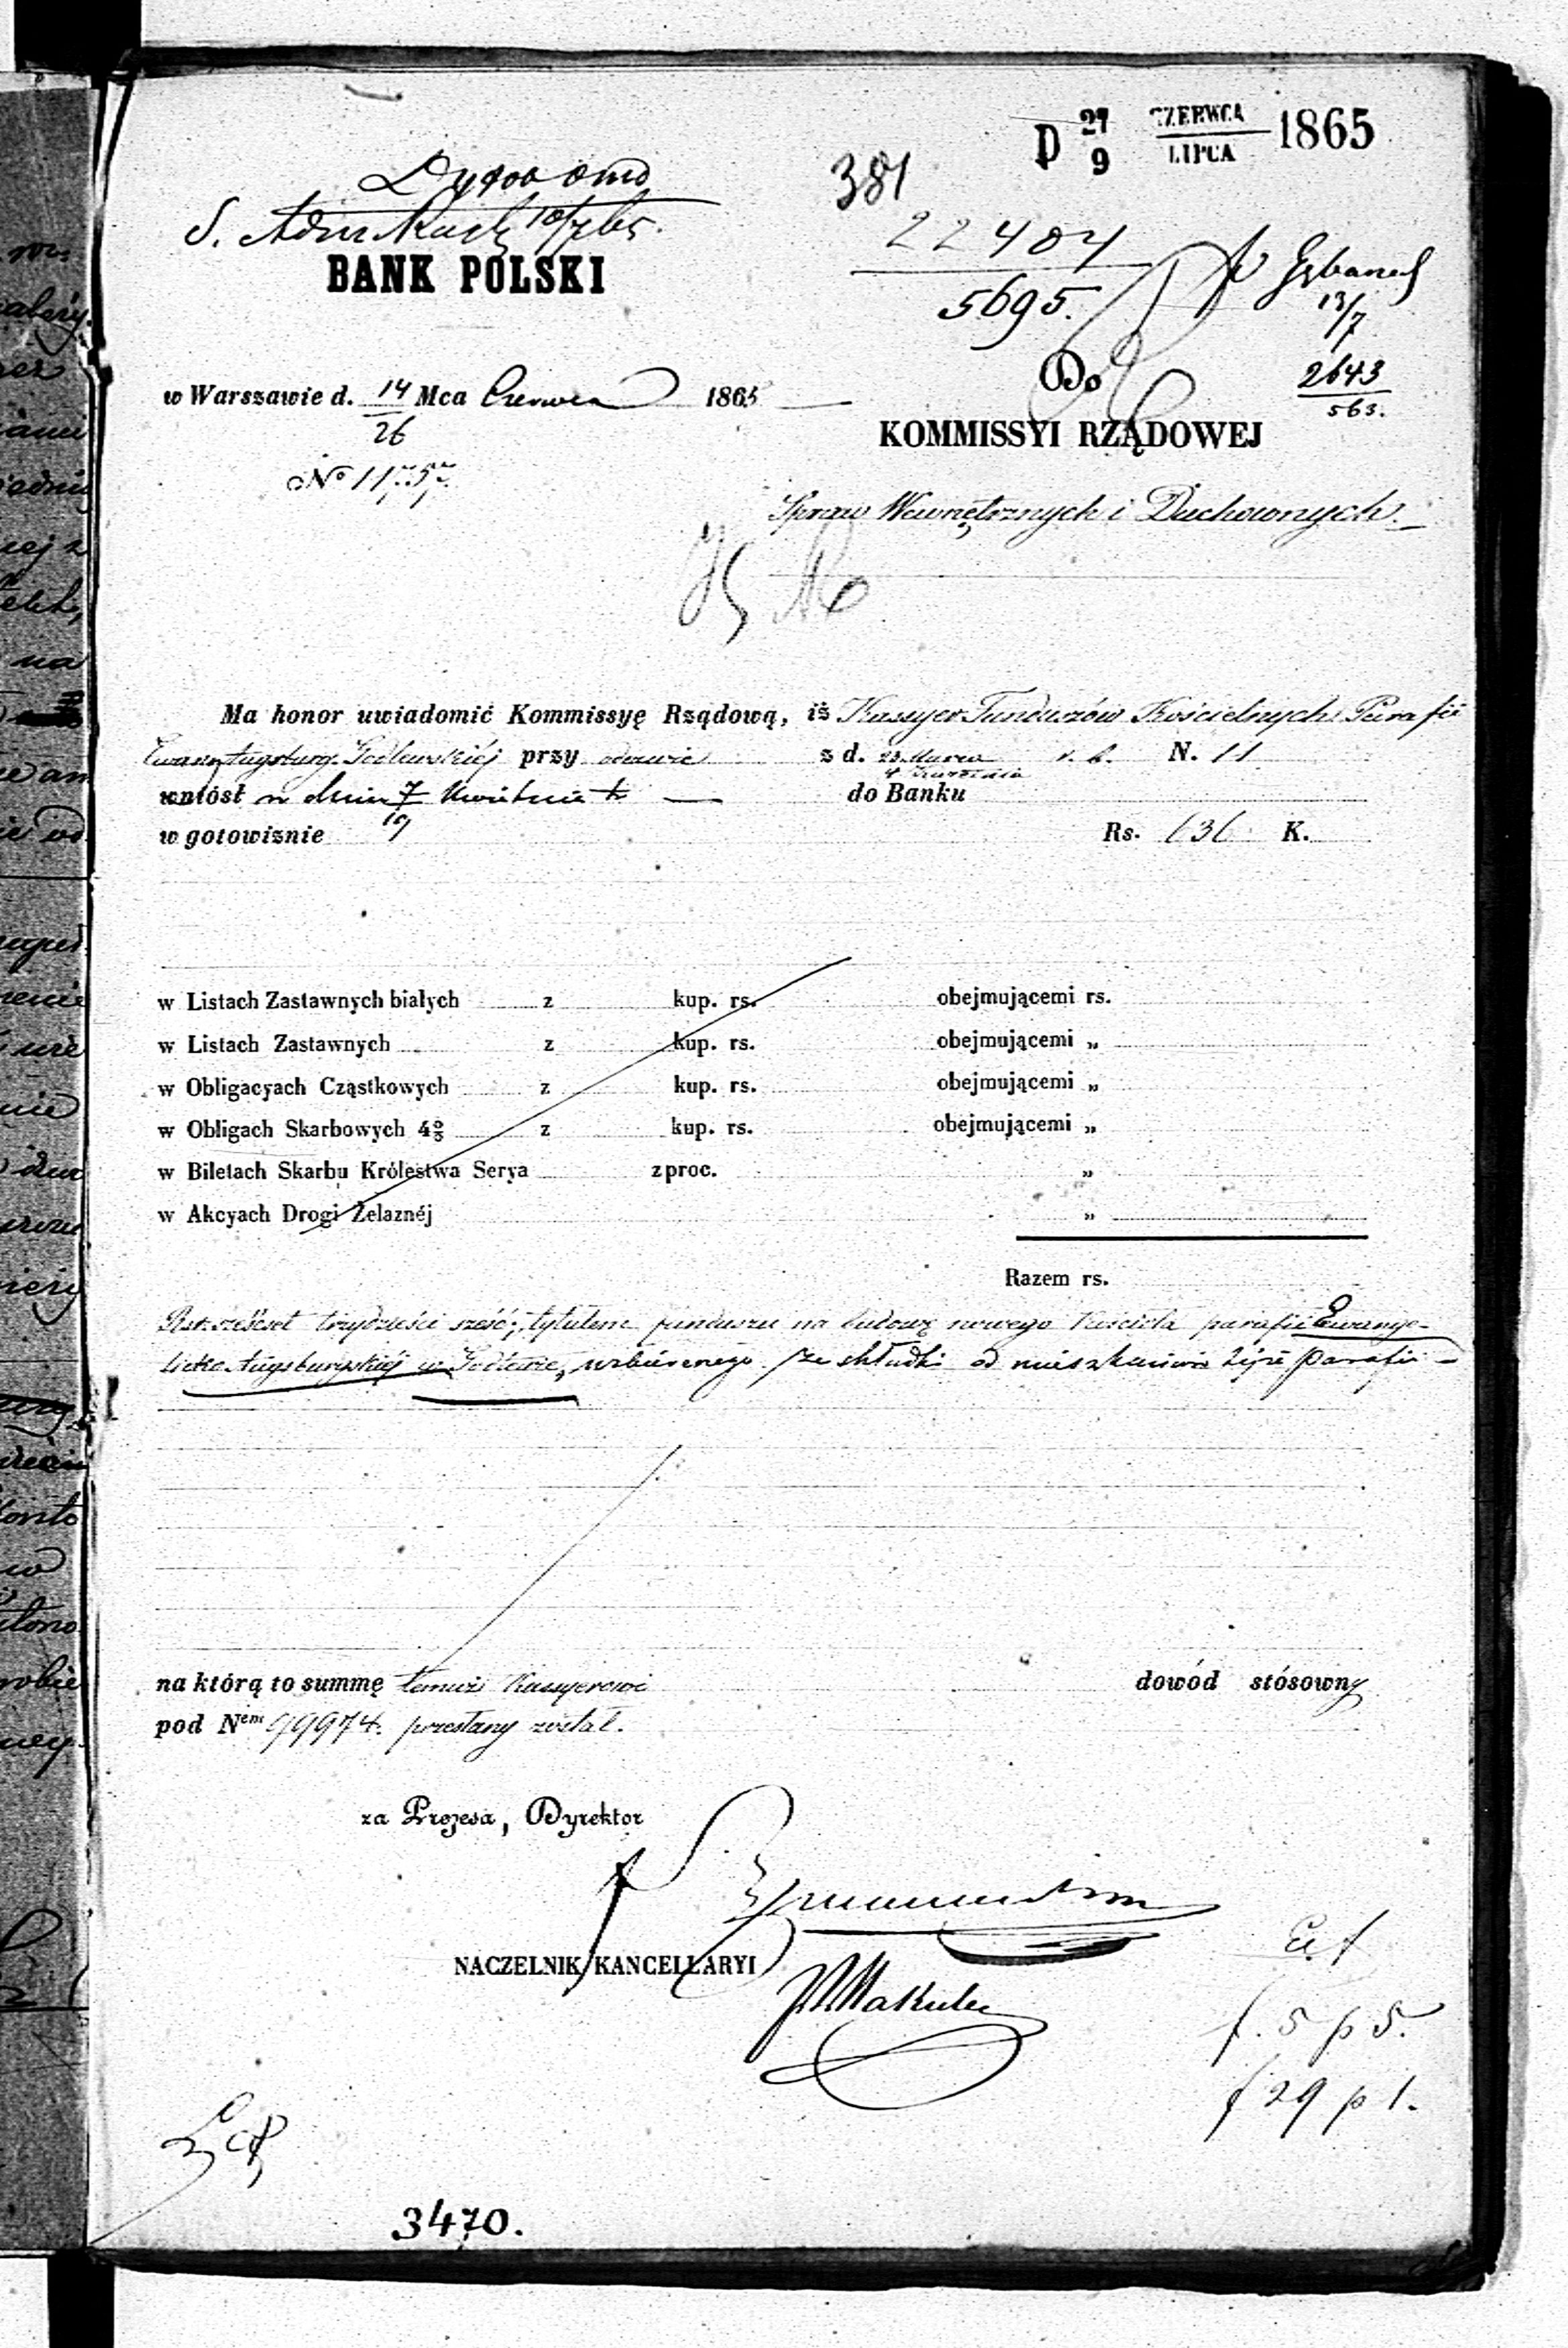 D 27/9 CZERWCA/LIPCA 1865
381
22484
5695.
13/7
2643
563.
BANK POLSKI
w Warszawie d. 14/26 Mca Czerwca 1865
No 11757
Do
KOMMISSYI RZĄDOWEJ
Spraw Wewnętrznych i Duchownych.
Ma honor uwiadomić Kommissyę Rządową, iż Kassyer Funduszów Kościelnych Parafii
Ewang. Augsburg. Godlewskiéj przy odezwie z d. 23 Marca/4 Kwietnia r. b. N. 11
wniósł w dniu 7/19 Kwietnia do Banku
w gotowiznie Rs. 636 K.
w Listach Zastawnych białych z kup. rs. obejmującemi rs.
w Listach Zastawnych z kup. rs. obejmującemi „
w Obligacyach Cząstkowych z kup. rs. obejmującemi „
w Obligach Skarbowych 4% z kup. rs. obejmującemi „
w Biletach Skarbu Królestwa Serya z proc. „
w Akcyach Drogi Żelaznéj „
Razem rs.
Rsr. sześćset trzydzieści sześć, tytułem funduszu na budowę nowego Kościoła parafii Ewange-
licko Augsburgskiéj w Godlewie, uzbieranego ze składki od mieszkańców téjże parafii
na którą to summę temuż Kassyerowi dowód stósowny
pod Nem 99974. przesłany został.
za Prezesa, Dyrektor
NACZELNIK KANCELLARYI
f. 5 p 5.
f 29 p 1.
3470.